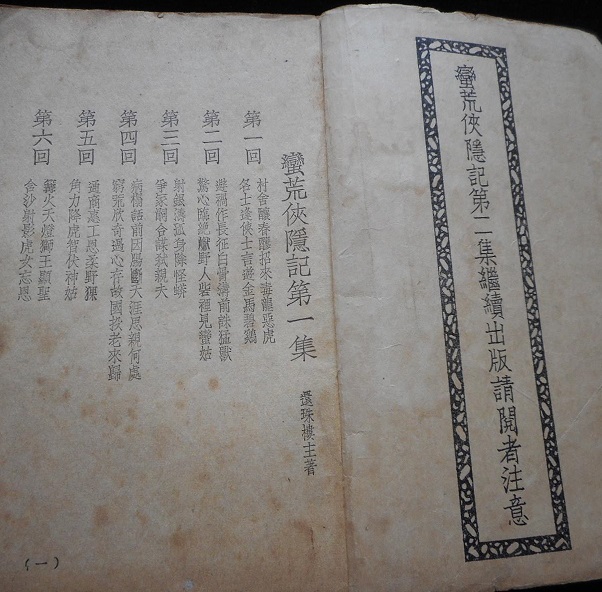 蠻荒俠隱記第二集繼續出版請閱者注意
蠻荒俠隱記第一集
還珠樓主著
第一回
村舍釀春醪招來毒龍惡虎
名士逢俠士言遊金馬碧鷄
第二回
避禍作長征白骨溝前誅猛獸
驚心臨絕巘野人砦裡見蠻姑
第三回
射飢濤孤身除怪蟒
爭家嗣合謀弒親夫
第四回
病榻語前因腸斷天涯思親何處
窮荒欣奇遇心存故國投老來歸
第五回
通商惠工恩柔野猓
角力降虎智伏神姑
第六回
鑼火天燈獅王顯聖
含沙射影虎女忘恩
(一)